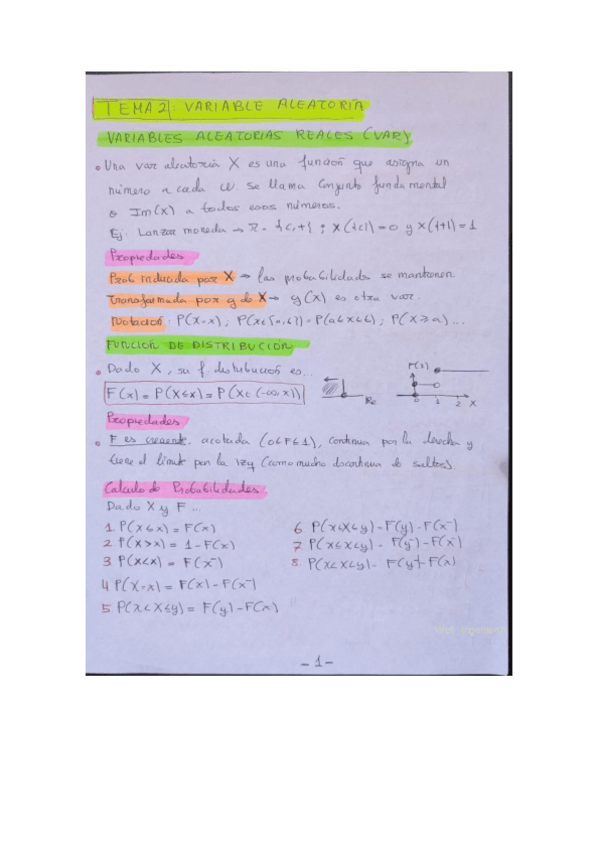 TEMA 2: VARIABLE ALEATORIA
VARIABLES ALEATORIAS REALES (VAR)
• Una var aleatoria X es una función que asigna un
número a cada ω se llama Conjunto fundamental
o Im(X) a todos esos números.
Ej: Lanzar moneda → Ω = {c,+} ; X({c}) = 0 y X({+}) = 1
Propiedades
Prob inducida por X → las probabilidades se mantienen
Transformada por g de X → g(X) es otra var.
Notación: P(X=x); P(X∈[a,b]) = P(a≤X≤b); P(X≥a)...
FUNCIÓN DE DISTRIBUCIÓN
• Dado X, su f. distribución es...
F(x) = P(X≤x) = P(X∈(-∞,x])
F(x)
0 1 2 X
Propiedades
• F es creciente, acotada (0≤F≤1), continua por la derecha y
tiene el límite por la izq (como mucho discontinua de saltos).
Calculo de Probabilidades
Dado X y F ...
1 P(X≤x) = F(x)
2 P(X>x) = 1-F(x)
3 P(X<x) = F(x⁻)
4 P(X=x) = F(x) - F(x⁻)
5 P(x<X≤y) = F(y) - F(x)
6 P(x≤X≤y) = F(y) - F(x⁻)
7 P(x≤X<y) = F(y⁻) - F(x⁻)
8 P(x<X<y) = F(y⁻) - F(x)
-1-